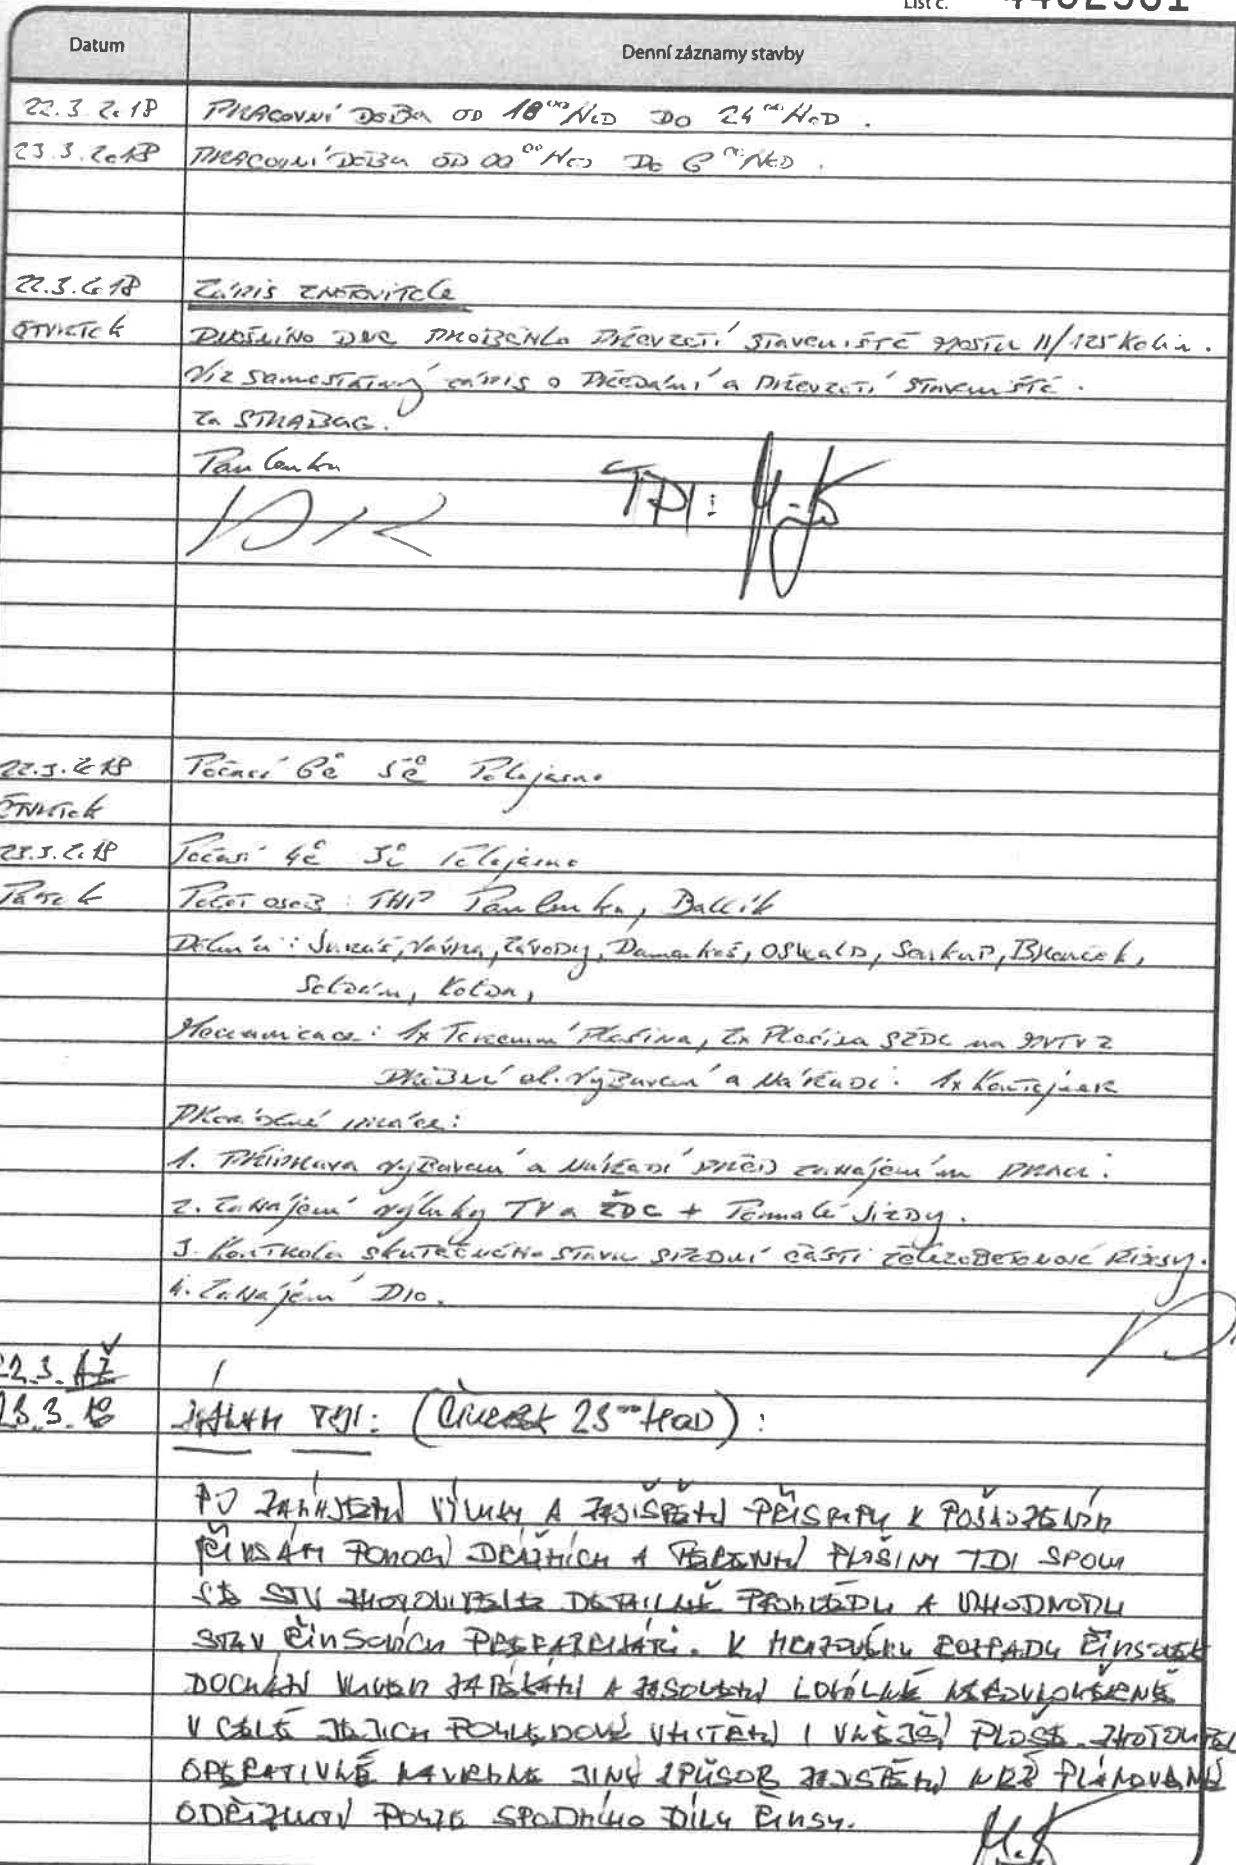 List č. 4462981
Datum Denní záznamy stavby
22.3.2018 PRACOVNÍ DOBA OD 18⁰⁰ HOD DO 24⁰⁰ HOD.
23.3.2018 PRACOVNÍ DOBA OD 00⁰⁰ HOD DO 6⁰⁰ HOD.
22.3.2018 Zápis zhotovitele
čtvrtek Dnešního dne proběhlo převzetí staveniště mostu II/125 Kolín.
Viz samostatný zápis o předání a převzetí staveniště.
Za STRABAG.
Paulenka
TDI:
22.3.2018 Počasí 6č 5č Polojasno
čtvrtek
23.3.2018 Počasí 4č 3č Polojasno
Pátek Počet osob: THP Paulenka, Ballík
Dělníci: Vávra, Závody, Damankoš, OSWALD, Soukup,
Kotan,
Mechanizace: 1x Terenní Plošina, 2x Plošina SŽDC na MVTV2
Drobné el. vybavení a nářadí. 1x Kontejner
Prováděné práce:
1. Příprava vybavení a nářadí před zahájením prací.
2. Zahájení výluky TV a ŽDC + Pomalé jízdy.
3. Kontrola skutečného stavu střední části železobetonové římsy.
4. Zahájení DIO.
22.3. AŽ
23.3.18 ZÁZNAM TDI: (ČTVRTEK 23⁰⁰ HOD):
PO ZAHÁJENÍ VÝLUKY A ZAJIŠTĚNÍ PŘÍSTUPU K POŠKOZENÝM
ŘÍMSÁM POMOCÍ DRÁŽNÍCH A TERENNÍ PLOŠINY TDI SPOLU
SE STV ZHOTOVITELE DETAILNĚ PROHLÉDLI A VYHODNOTILI
STAV ŘÍMSOVÝCH PREFABRIKÁTŮ. K MRAZOVÉMU ROZPADU ŘÍMSOVEK
DOCHÁZÍ VLIVEM ZATÉKÁNÍ A ZASOLENÍ LOKÁLNĚ NEROVNOMĚRNĚ
V CELÉ JEJICH POHLEDOVÉ VNITŘNÍ I VNĚJŠÍ PLOŠE. ZHOTOVITEL
OPERATIVNĚ NAVRHNE JINÝ ZPŮSOB ZAJIŠTĚNÍ NEŽ PLÁNOVANÉ
ODŘÍZNUTÍ POUZE SPODNÍHO DÍLU ŘÍMSY.